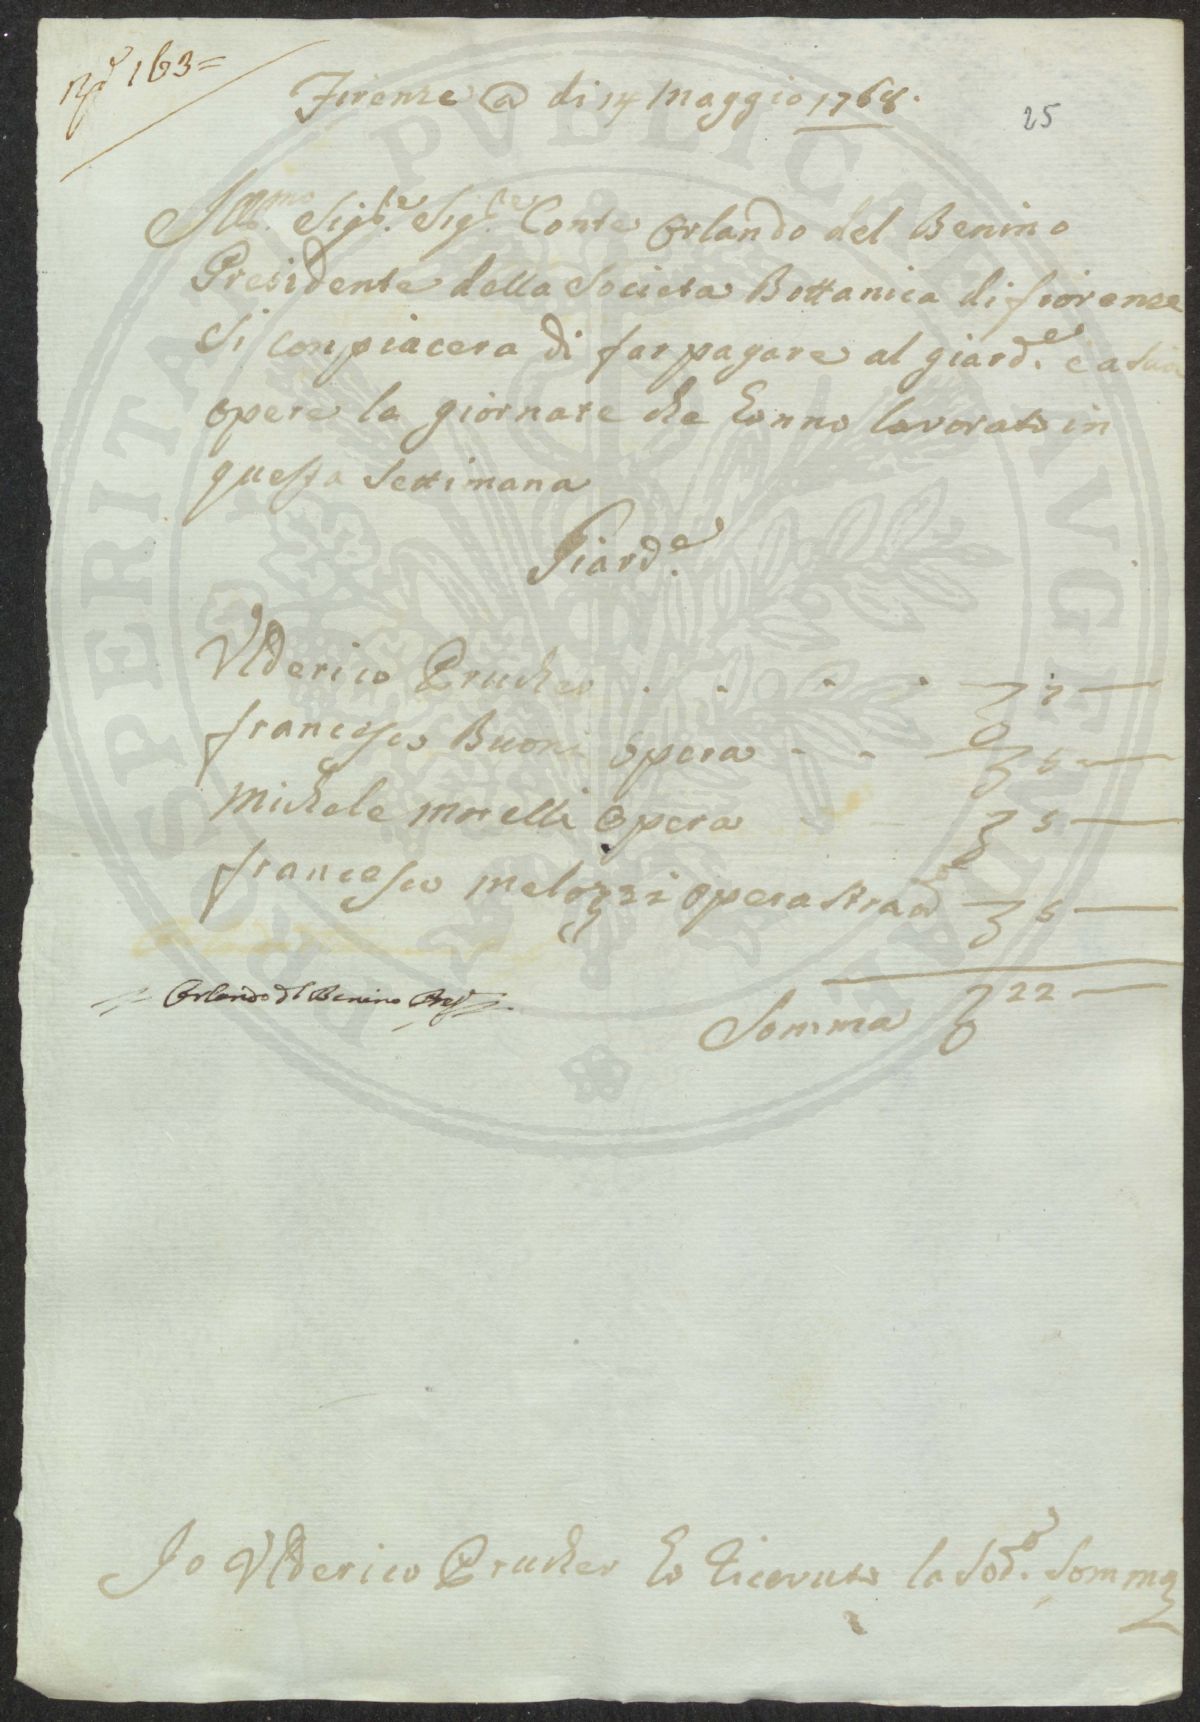 N.º 163=
Firenze @ di 14 Maggio 1768.
25
Ill.mo Sig.re Sig.re Conte Orlando del Benino
Presidente della Societa Bottanica di fiorenze
Si conpiacera di far pagare al giard.e e a sua
opere la giornate che hanno lavorato in
questa Settimana
Giard.e
Ulderico Prucher . . . . 7 —
francesco Buoni opera - - 5 —
Michele morelli opera 5 —
francesco melozzi opera 5 —
Orlando del Benino Pres.
Somma 22 —
Io Ulderico Prucher ho riceuuto la Sod.a Somma
PVBLICAE AVGENDAE PROSPERITATI